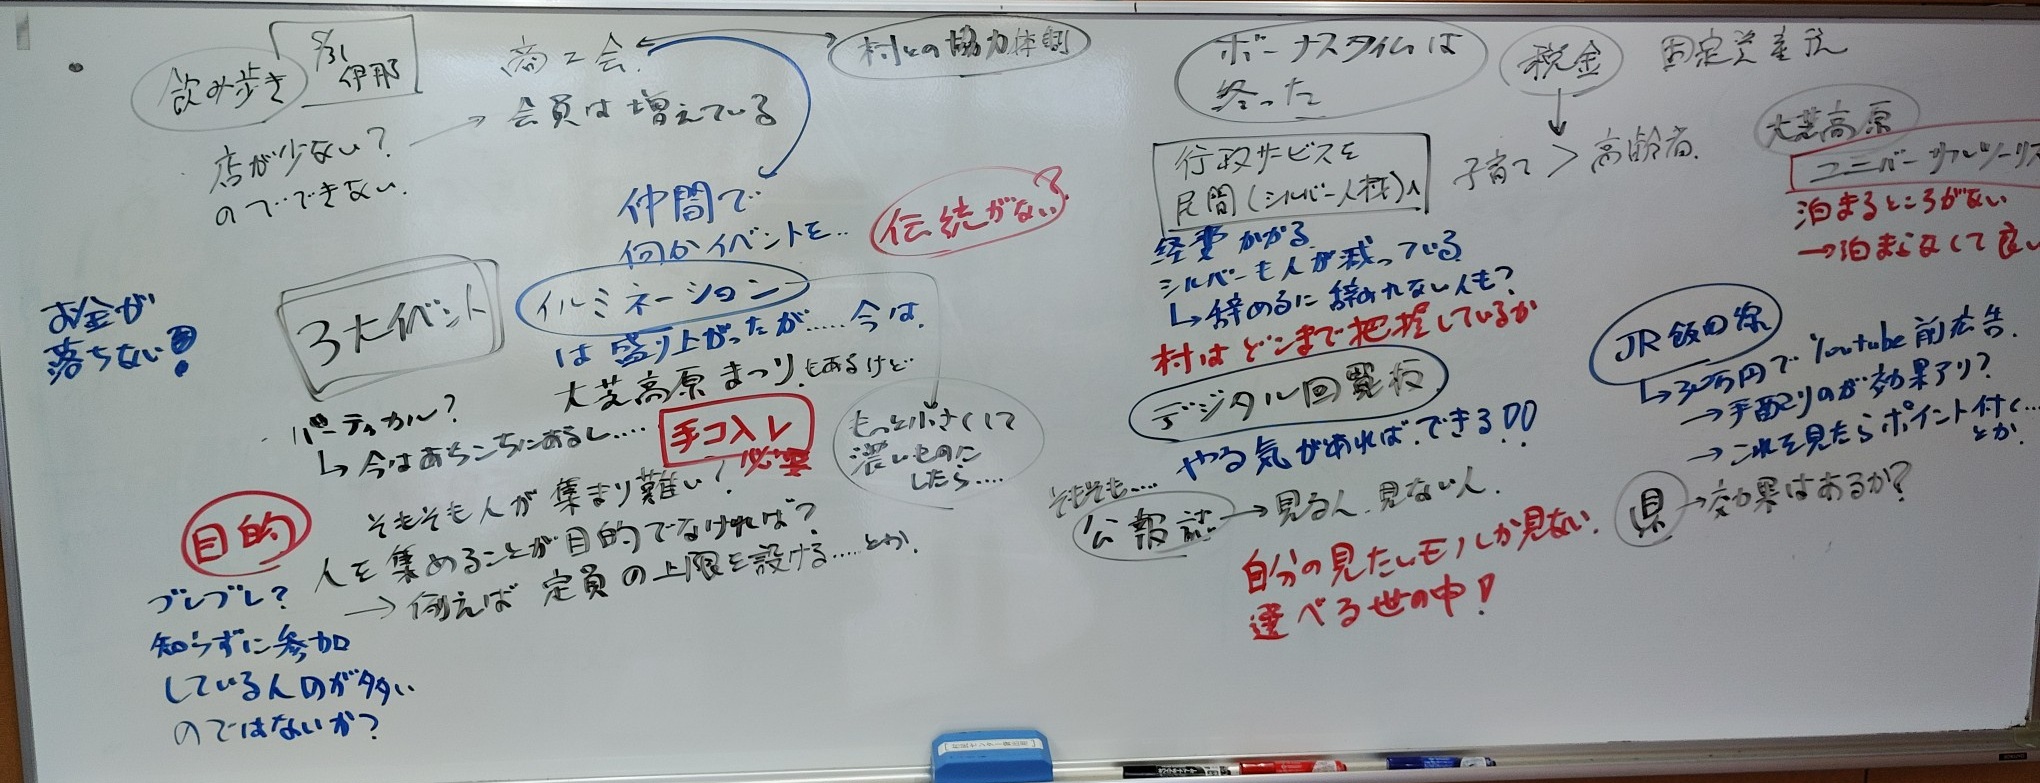 飲み歩き
5/31
伊那
店が少ない?
のでできない.
商工会
会員は増えている
村との協力体制
仲間で
何かイベントを..
伝統がない?
お金が
落ちない!
3大イベント
イルミネーション
は盛り上がったが.....今は.
大芝高原まつり.もあるけど
バーティカル?
↳今はあちこちにあるし....
手コ入レ
必要
もっと小さくして
濃いものに
したら....
そもそも人が集まり難い?
目的
人を集めることが目的でなければ?
→例えば定員の上限を設ける....とか.
ブレブレ?
知らずに参加
している人のが多い
のではないか?
ボーナスタイムは
終った
税金
固定資産税
子育て>高齢者.
行政サービスを
民間(シルバー人材)へ
経費かかる
シルバーも人が減っている
↳辞めるに辞めれない人も?
村はどこまで把握しているか
デジタル回覧板
やる気があれば.できる!!
そもそも....
公報誌→見る人.見ない人.
自分の見たいモノしか見ない.
選べる世の中!
大芝高原
ユニバーサルツーリズ
泊まるところがない
→泊まらなくて良い
JR飯田線
↳30万円でYoutube前広告.
→手配りのが効果アリ?
→これを見たらポイント付く...
とか.
県→効果はあるか?